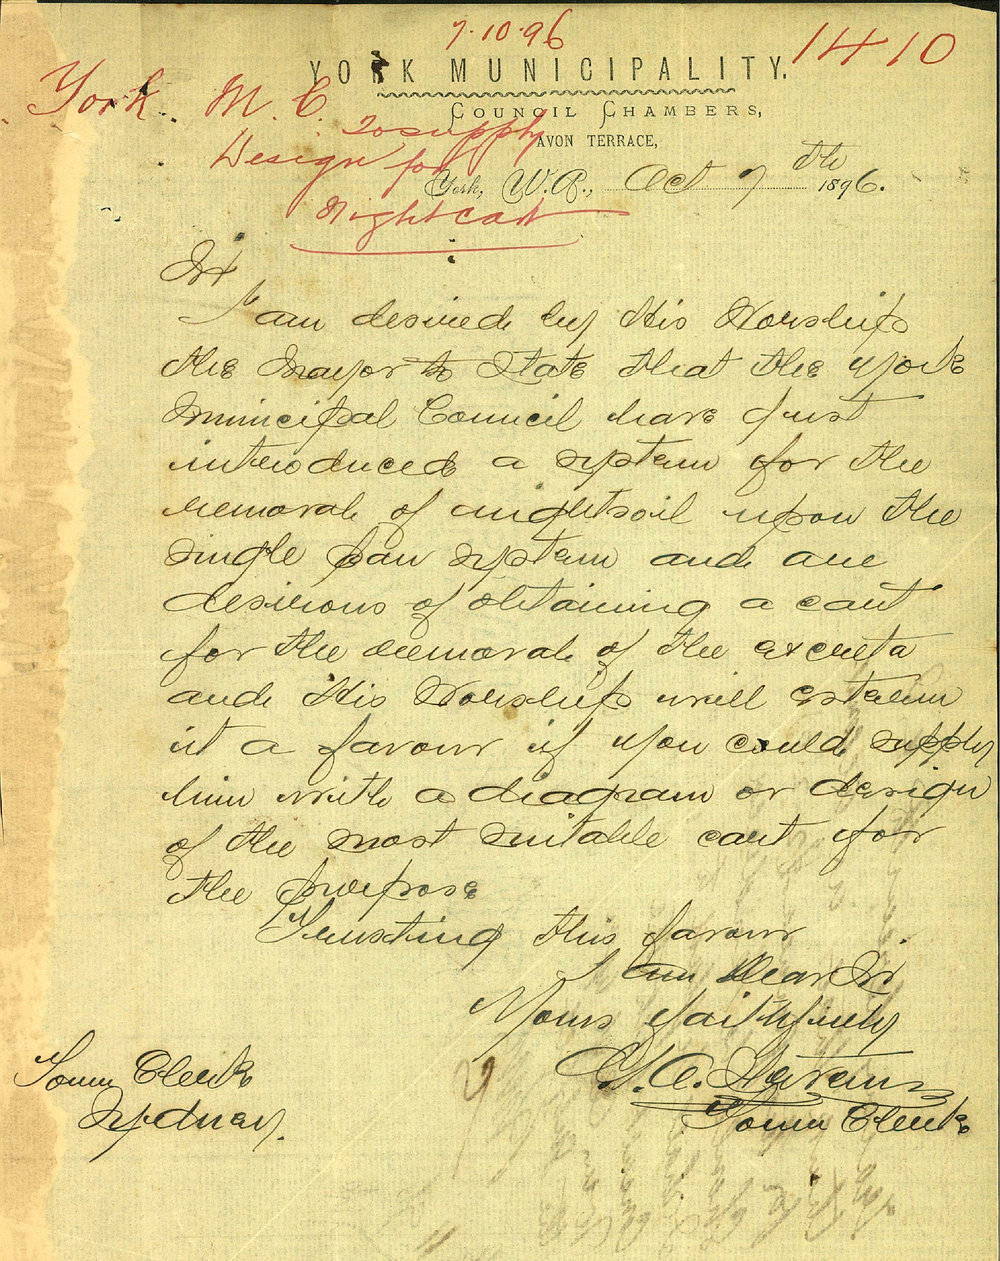 7.10.96
1410
YORK MUNICIPALITY.
COUNCIL CHAMBERS,
AVON TERRACE,
York, W.A., Oct 7th 1896.
York M. C.
To supply
Design for
Nightcart
Sir
I am desired by His Worship
the Mayor to State that the York
Municipal Council have just
introduced a system for the
removal of nightsoil upon the
single pan system and are
desirous of obtaining a cart
for the removal of the excreta
and His Worship will esteem
it a favour if you could supply
him with a diagram or design
of the most suitable cart for
the purpose
Trusting this favour
I am Dear Sir
Yours faithfully
Town Clerk
Town Clerk
Sydney.